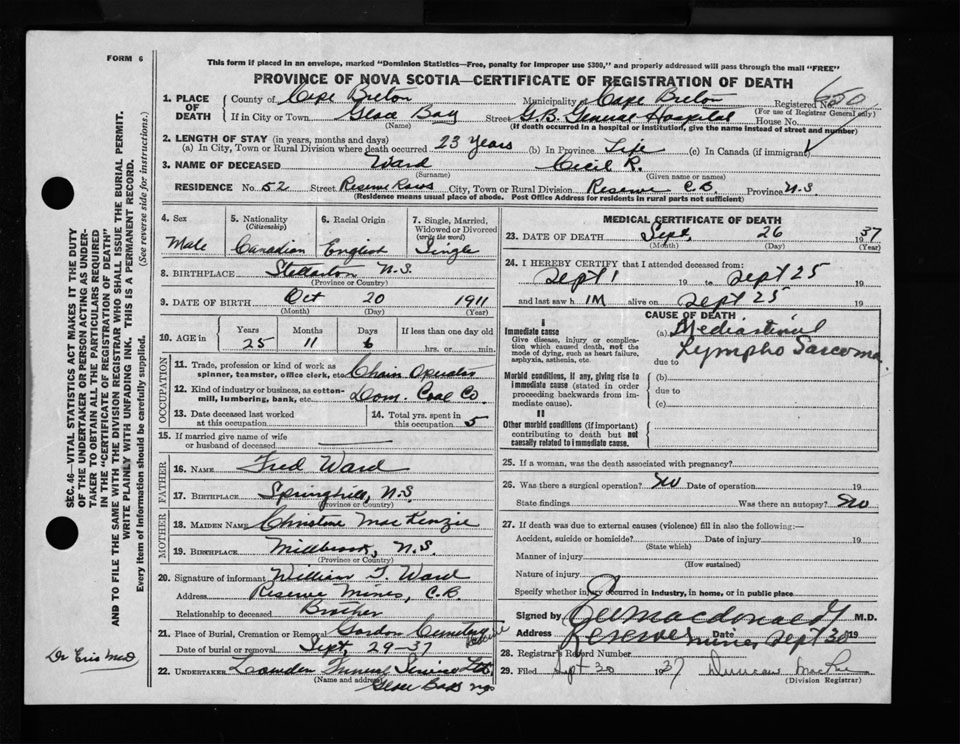 FORM 6
This form if placed in an envelope, marked "Dominion Statistics—Free, penalty for improper use $300," and properly addressed will pass through the mail "FREE"
PROVINCE OF NOVA SCOTIA—CERTIFICATE OF REGISTRATION OF DEATH
650
1. PLACE OF DEATH
County of Cape Breton Municipality of Cape Breton Registered No.
(For use of Registrar General only)
If in City or Town Glace Bay Street G.B. General Hospital House No.
(Name) (If death occurred in a hospital or institution, give the name instead of street and number)
2. LENGTH OF STAY (in years, months and days)
(a) In City, Town or Rural Division where death occurred 23 Years (b) In Province Life (c) In Canada (if immigrant)
3. NAME OF DECEASED Ward Cecil R.
(Surname) (Given name or names)
RESIDENCE No. 52 Street Reserve Rows City, Town or Rural Division Reserve C.B. Province N.S.
(Residence means usual place of abode. Post Office Address for residents in rural parts not sufficient)
4. Sex Male
5. Nationality (Citizenship) Canadian
6. Racial Origin English
7. Single, Married, Widowed or Divorced (write the word) Single
8. BIRTHPLACE Stellarton N.S.
(Province or Country)
9. DATE OF BIRTH Oct 20 1911
(Month) (Day) (Year)
10. AGE in Years Months Days If less than one day old
25 11 6 hrs. or min.
OCCUPATION
11. Trade, profession or kind of work as spinner, teamster, office clerk, etc. Chain Operator
12. Kind of industry or business, as cotton-mill, lumbering, bank, etc. Dom. Coal Co.
13. Date deceased last worked at this occupation
14. Total yrs. spent in this occupation 5
15. If married give name of wife or husband of deceased
FATHER
16. NAME Fred Ward
17. BIRTHPLACE Springhill, N.S.
(Province or Country)
MOTHER
18. MAIDEN NAME Christine MacKenzie
19. BIRTHPLACE Millbrook, N.S.
(Province or Country)
20. Signature of informant William F. Ward
Address Reserve Mines, C.B.
Relationship to deceased Brother
21. Place of Burial, Cremation or Removal Gordon Cemetery Reserve
Date of burial or removal Sept. 29-37
22. UNDERTAKER Funeral Service Ltd.
(Name and address) Glace Bay N.S.
MEDICAL CERTIFICATE OF DEATH
23. DATE OF DEATH Sept, 26 1937
(Month) (Day) (Year)
24. I HEREBY CERTIFY that I attended deceased from:
Sept 1 19 to Sept 25 19
and last saw h IM alive on Sept 25 19
CAUSE OF DEATH
I
Immediate cause
Give disease, injury or complication which caused death, not the mode of dying, such as heart failure, asphyxia, asthenia, etc.
(a) Mediastinal Lympho Sarcoma
due to
Morbid conditions, if any, giving rise to immediate cause (stated in order proceeding backwards from immediate cause).
(b)
due to
(c)
II
Other morbid conditions (if important) contributing to death but not causally related to immediate cause.
25. If a woman, was the death associated with pregnancy?
26. Was there a surgical operation? No Date of operation 19
State findings Was there an autopsy? No
27. If death was due to external causes (violence) fill in also the following:—
Accident, suicide or homicide? Date of injury 19
(State which)
Manner of injury
(How sustained)
Nature of injury
Specify whether injury occurred in industry, in home, or in public place
Signed by Macdonald M.D.
Address Reserve Mines Date Sept 30 19
28. Registrars Record Number
29. Filed Sept 30 1937 Duncan MacRae
(Division Registrar)
SEC. 46—VITAL STATISTICS ACT MAKES IT THE DUTY
OF THE UNDERTAKER OR PERSON ACTING AS UNDER-
TAKER TO OBTAIN ALL THE PARTICULARS REQUIRED
IN THE "CERTIFICATE OF REGISTRATION OF DEATH"
AND TO FILE THE SAME WITH THE DIVISION REGISTRAR WHO SHALL ISSUE THE BURIAL PERMIT.
WRITE PLAINLY WITH UNFADING INK. THIS IS A PERMANENT RECORD.
Every item of information should be carefully supplied. (See reverse side for instructions.)